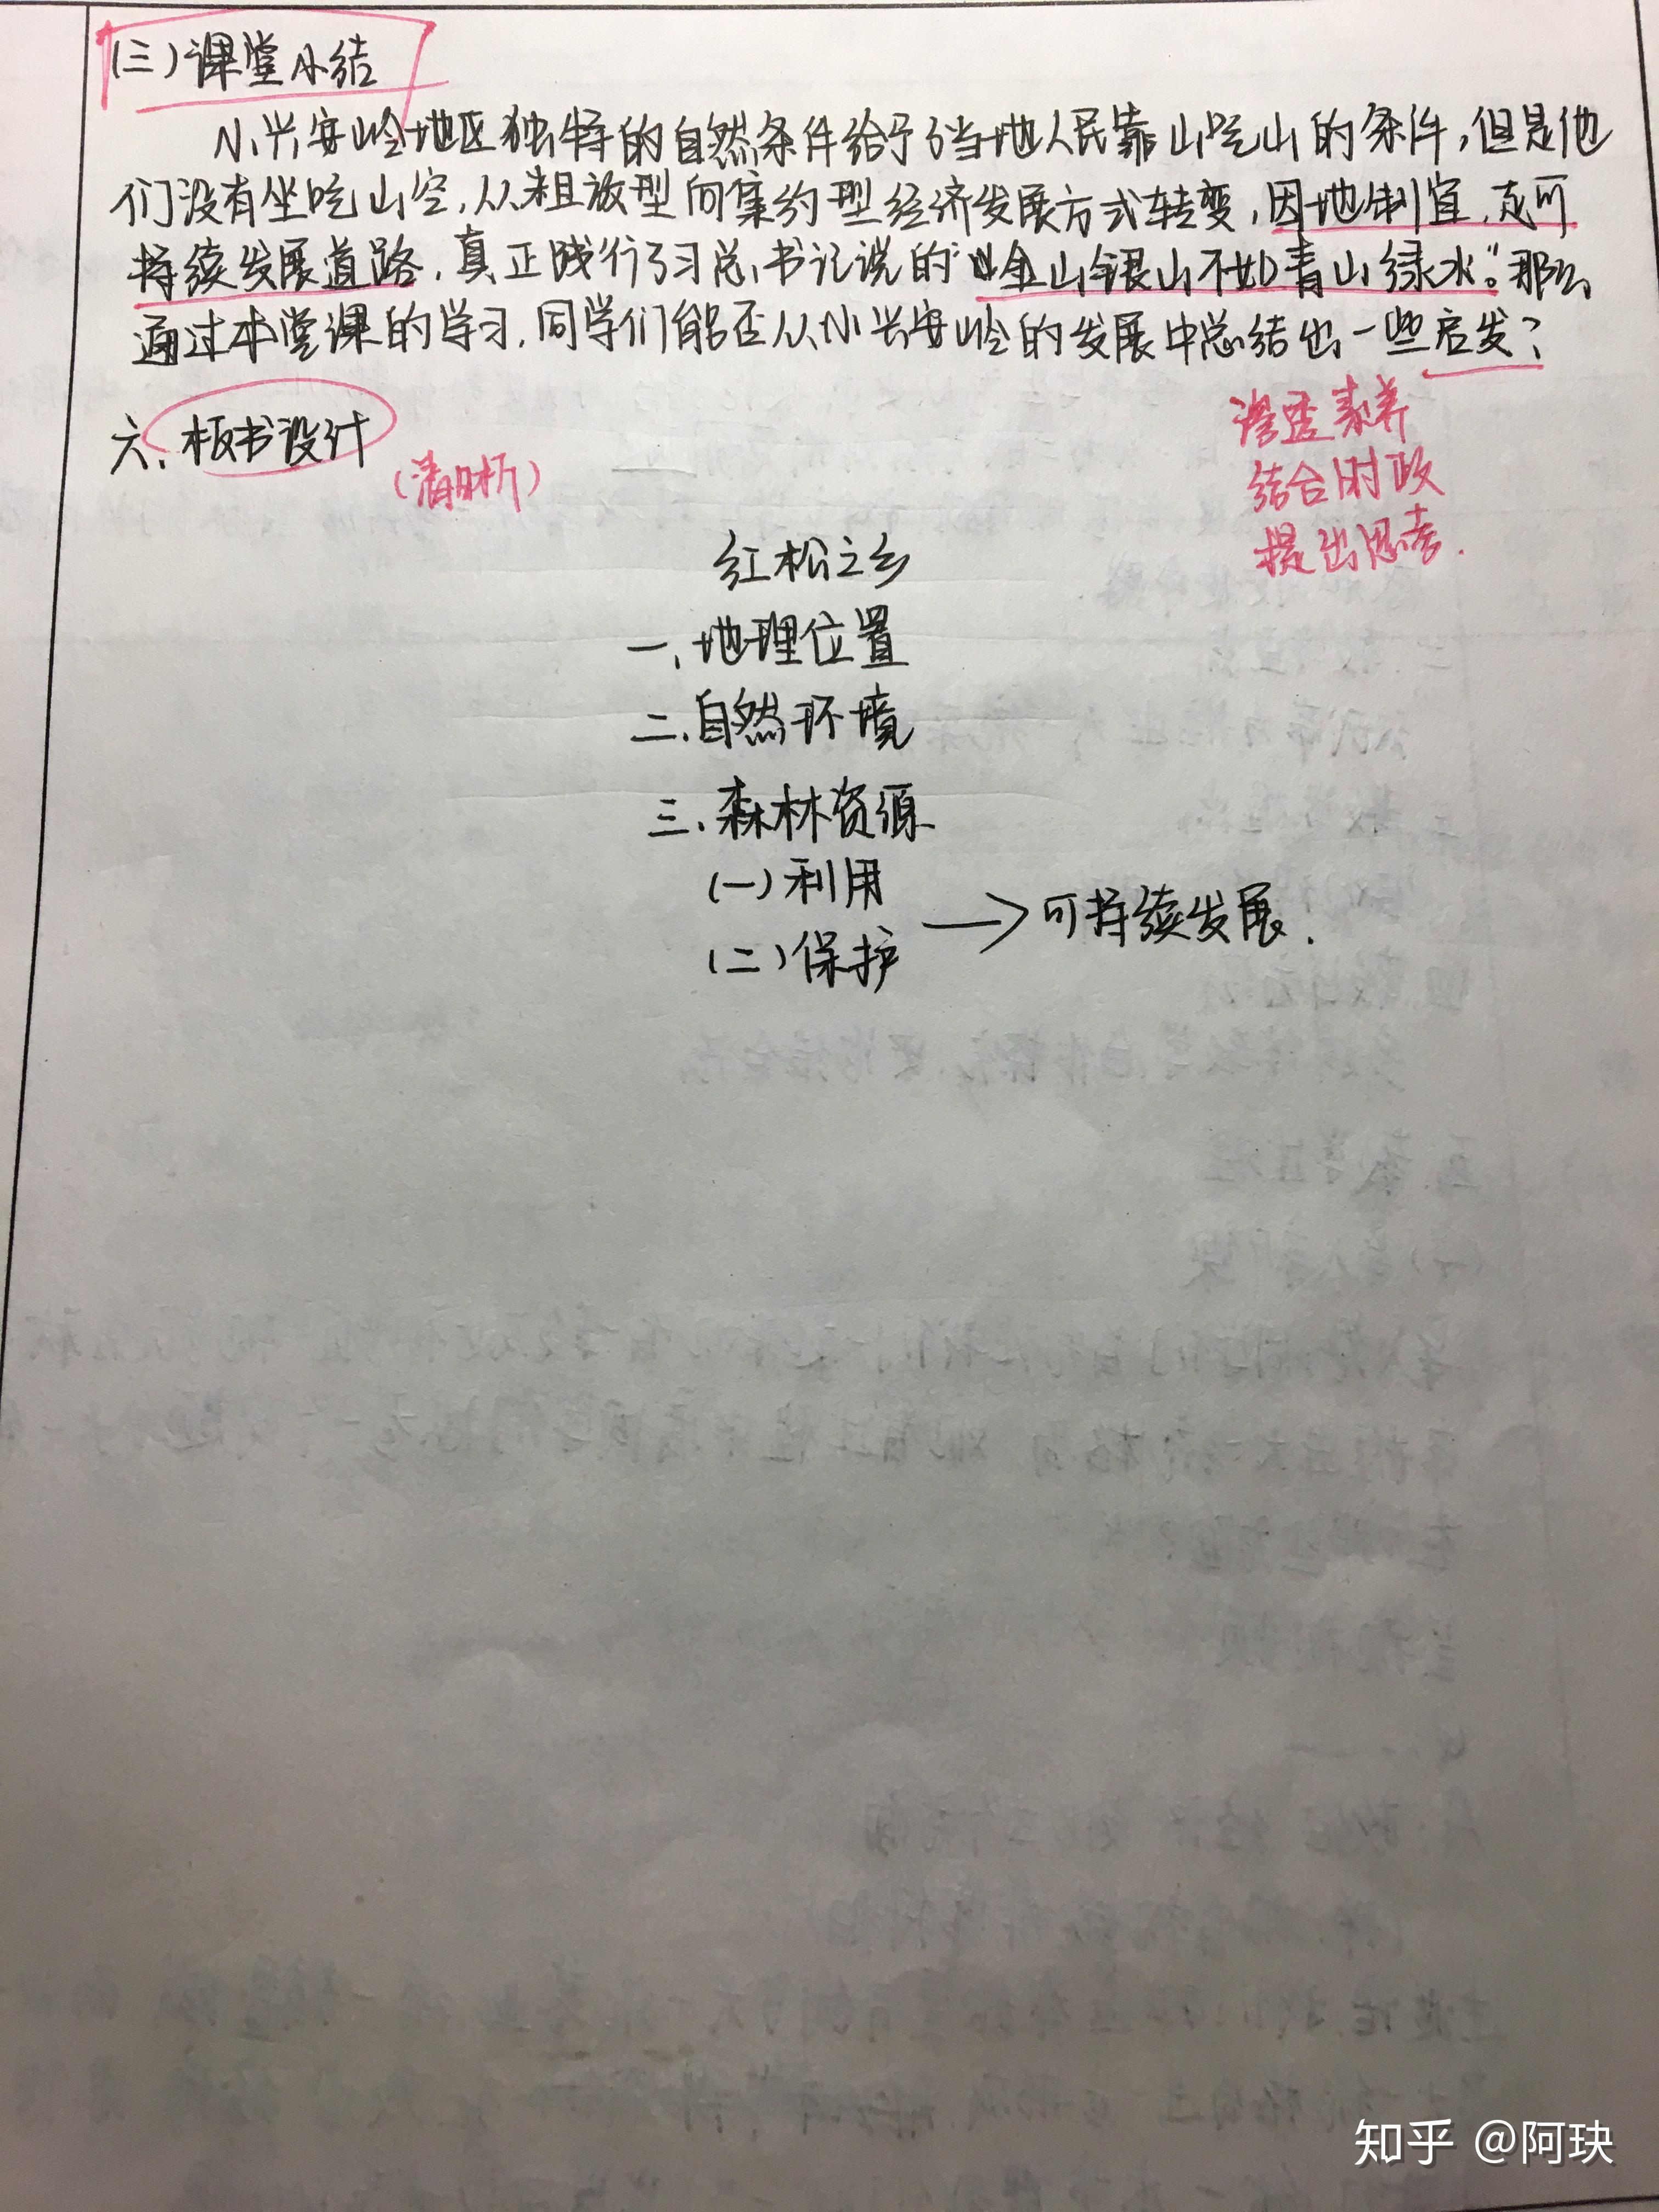 (三)课堂小结
小兴安岭地区独特的自然条件给予了当地人民靠山吃山的条件,但是他
们没有坐吃山空,从粗放型向集约型经济发展方式转变,因地制宜,走可
持续发展道路,真正践行了习总书记说的“金山银山不如青山绿水”。那么
通过本堂课的学习,同学们能否从小兴安岭的发展中总结出一些启发?
六、板书设计
(清晰)
渗透素养
结合时政
提出思考.
红松之乡
一、地理位置
二、自然环境
三、森林资源
(一)利用
(二)保护
→可持续发展.
知乎 @阿玦